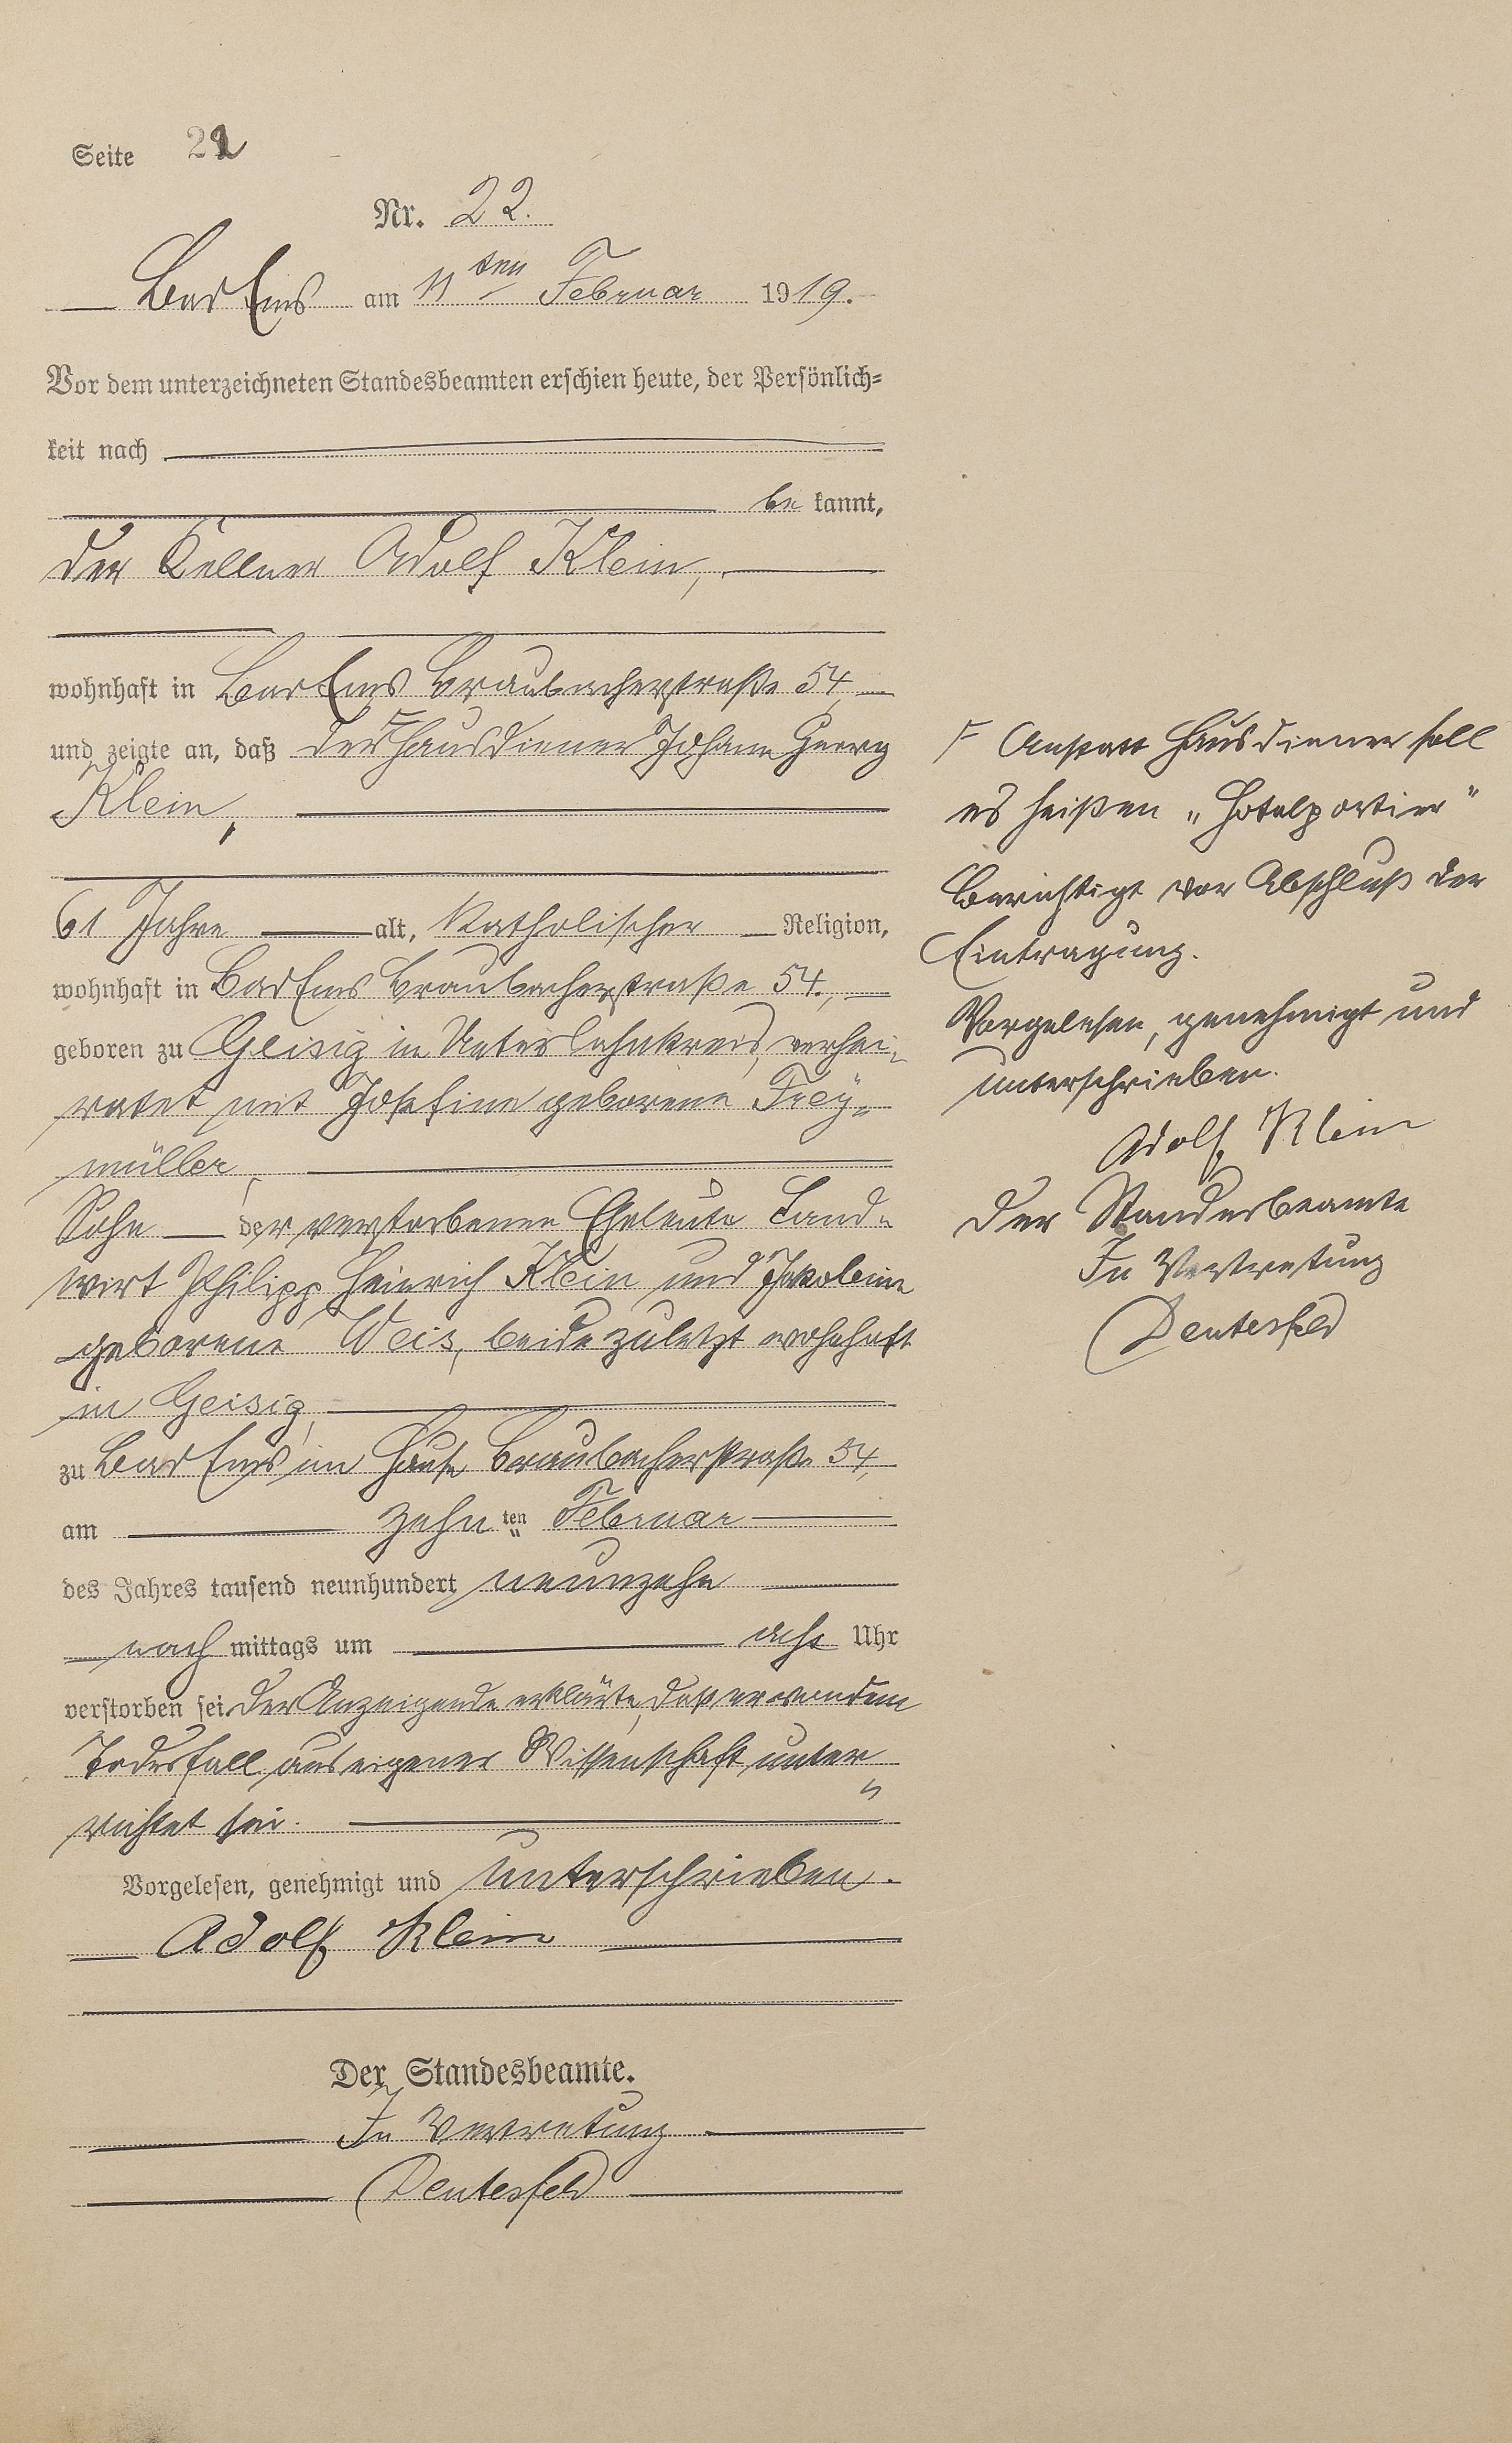 Seite 22
Nr. 22.
Bad Ems am 11ten Februar 1919.
Vor dem unterzeichneten Standesbeamten erschien heute, der Persönlich=
keit nach
be kannt,
der Kellner Adolf Klein,
wohnhaft in Bad Ems Braubacherstraße 54
und zeigte an, daß der F Hausdiener Johann Georg
Klein,
61 Jahre alt, katholischer Religion,
wohnhaft in Bad Ems Braubacherstraße 54.,
geboren zu Geisig im Unterlahnkreis, verhei-
ratet mit Josefine geborene Frey-
müller,
Sohn der verstorbenen Eheleute Land-
wirt Philipp Heinrich Klein und Jakobine
geborene Weis, beide zuletzt wohnhaft
in Geisig,
zu Bad Ems im Hause Braubacherstraße 54,
am zehn ten Februar
des Jahres tausend neunhundert neunzehn
nach mittags um acht Uhr
verstorben sei. Der Anzeigende erklärte, daß er von dem
Todesfall aus eigener Wissenschaft unter=
richtet sei.
Vorgelesen, genehmigt und unterschrieben.
Adolf Klein
Der Standesbeamte.
In Vertretung
Deutesfeld
F Anstatt Hausdiener soll
es heißen „Hotelportier"
Berichtigt vor Abschluß der
Eintragung.
Vorgelesen, genehmigt und
unterschrieben.
Adolf Klein
Der Standesbeamte
In Vertretung
Deutesfeld